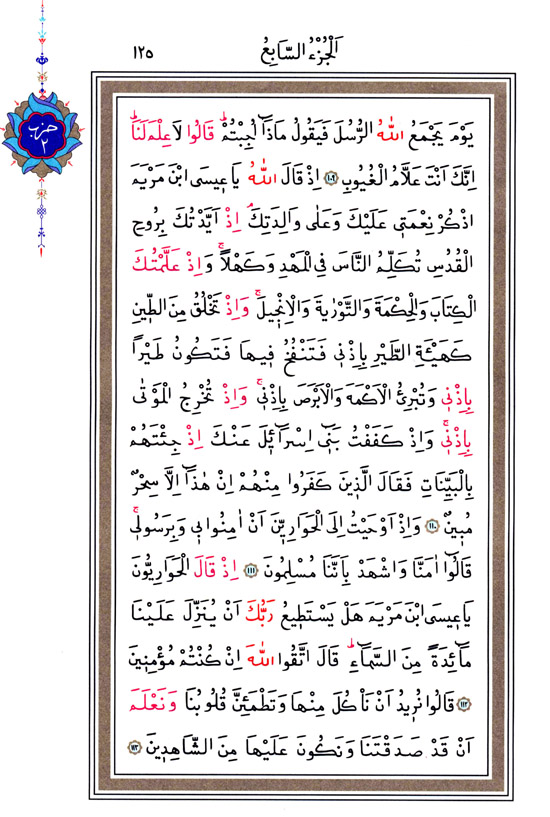 ١٢٥
اَلْجُزْءُ السَّابِعُ
حزب
٢
يَوْمَ يَجْمَعُ اللّٰهُ الرُّسُلَ فَيَقُولُ مَاذَٓا اُجِبْتُمْۜ قَالُوا لَا عِلْمَ لَنَاۜ
اِنَّكَ اَنْتَ عَلَّامُ الْغُيُوبِ ﴿١٠٩﴾ اِذْ قَالَ اللّٰهُ يَا ع۪يسَى ابْنَ مَرْيَمَ
اذْكُرْ نِعْمَت۪ي عَلَيْكَ وَعَلٰى وَالِدَتِكَۢ اِذْ اَيَّدْتُكَ بِرُوحِ
الْقُدُسِ تُكَلِّمُ النَّاسَ فِي الْمَهْدِ وَكَهْلًاۚ وَاِذْ عَلَّمْتُكَ
الْكِتَابَ وَالْحِكْمَةَ وَالتَّوْرٰيةَ وَالْاِنْج۪يلَۚ وَاِذْ تَخْلُقُ مِنَ الطّ۪ينِ
كَهَيْـَٔةِ الطَّيْرِ بِاِذْن۪ي فَتَنْفُخُ ف۪يهَا فَتَكُونُ طَيْرًا
بِاِذْن۪ي وَتُبْرِئُ الْاَكْمَهَ وَالْاَبْرَصَ بِاِذْن۪يۚ وَاِذْ تُخْرِجُ الْمَوْتٰى
بِاِذْن۪يۚ وَاِذْ كَفَفْتُ بَن۪ٓي اِسْرَٓائ۪لَ عَنْكَ اِذْ جِئْتَهُمْ
بِالْبَيِّنَاتِ فَقَالَ الَّذ۪ينَ كَفَرُوا مِنْهُمْ اِنْ هٰذَٓا اِلَّا سِحْرٌ
مُب۪ينٌ ﴿١١٠﴾ وَاِذْ اَوْحَيْتُ اِلَى الْحَوَارِيّ۪نَ اَنْ اٰمِنُوا ب۪ي وَبِرَسُول۪يۚ
قَالُٓوا اٰمَنَّا وَاشْهَدْ بِاَنَّنَا مُسْلِمُونَ ﴿١١١﴾ اِذْ قَالَ الْحَوَارِيُّونَ
يَا ع۪يسَى ابْنَ مَرْيَمَ هَلْ يَسْتَط۪يعُ رَبُّكَ اَنْ يُنَزِّلَ عَلَيْنَا
مَٓائِدَةً مِنَ السَّمَٓاءِۜ قَالَ اتَّقُوا اللّٰهَ اِنْ كُنْتُمْ مُؤْمِن۪ينَ
﴿١١٢﴾ قَالُوا نُر۪يدُ اَنْ نَأْكُلَ مِنْهَا وَتَطْمَئِنَّ قُلُوبُنَا وَنَعْلَمَ
اَنْ قَدْ صَدَقْتَنَا وَنَكُونَ عَلَيْهَا مِنَ الشَّاهِد۪ينَ ﴿١١٣﴾